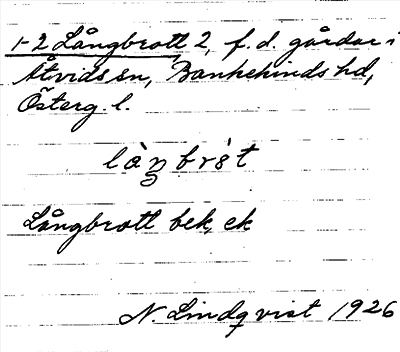 1-2 Långbrott, 2, f. d. gårdar i
Åtvids sn, Bankekinds hd,
Österg. l.
Långbrott bek, ek
N. Lindqvist 1926